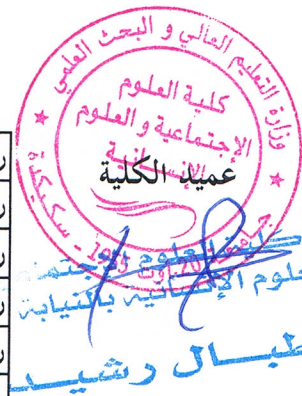 وزارة التعليم العالي و البحث العلمي
كلية العلوم
الإجتماعية و العلوم
الإنسانية
عميد الكلية
1955 - سكيكدة
العلوم الإنسانية بالنيابة
طبال رشيد